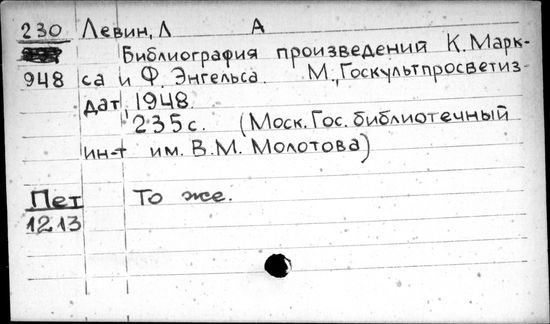 230 Левин, Л А
Библиография произведений К. Марк-
948 са и Ф. Энгельса. М., Госкультпросветиз-
дат, 1948.
235 с. (Моск. Гос. библиотечный
ин-т им. В.М. Молотова)
Пет То же.
1213